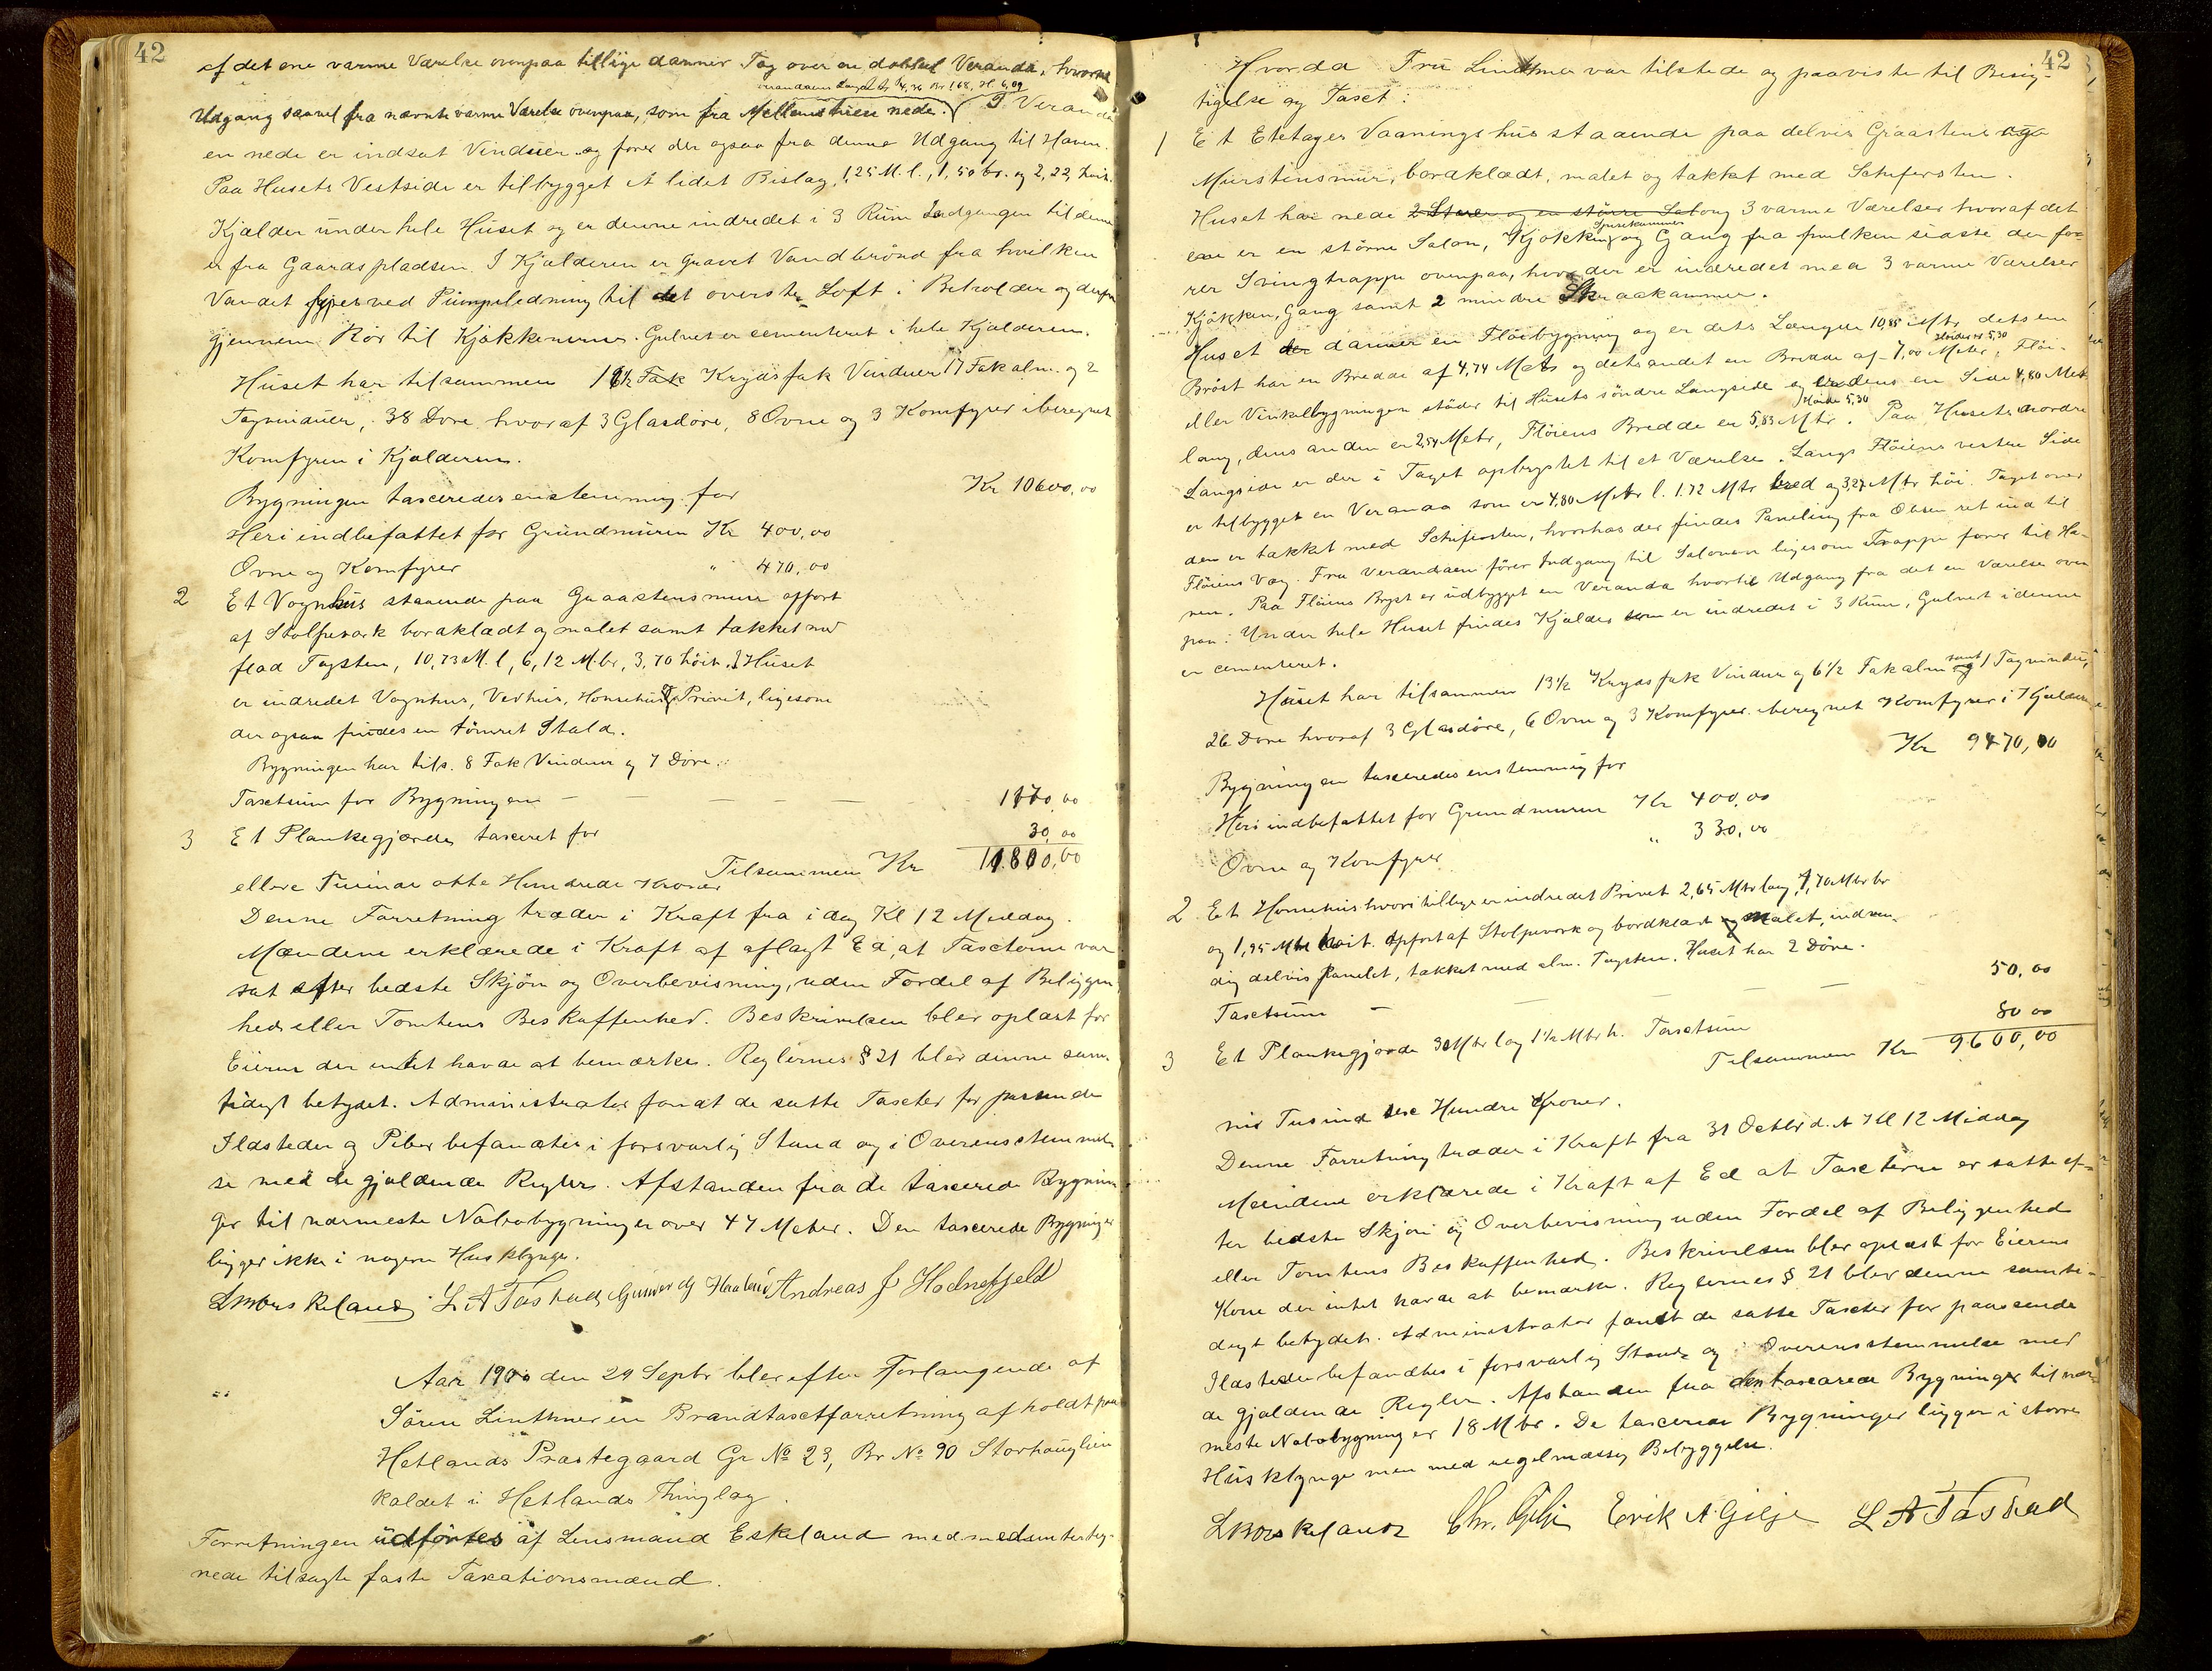 42
af det ene varme Værelse ovenpaa tillige danner Tag over en dobbel Veranda, hvortil
verandaens Længde 4,36 Br. 1,68, H. 6,09
Udgang saavel fra nævnte varme Værelse ovenpaa, som fra Mellemstuen nede. I Veranda
en nede er indsat Vinduer og fører der ogsaa fra denne Udgang til Haven.
Paa Husets Vestside er tilbygget et lidet Bislag, 1,25 M. l., 1,50 br. og 2,22 høit.
Kjælder under hele Huset og er denne indredet i 3 Rum Indgangen til denne
er fra Gaardspladsen. I Kjælderen er gravet Vandbrønd fra hvilken
Vandet ved Pumpeledning til det øverste Loft i Beholder og derfra
gjennem Rør til Kjøkkenerne. Gulvet er cementeret i hele Kjælderen.
Huset har tilsammen 16½ Fak Krydsfak Vinduer 17 Fak alm. og 2
Tagvinduer, 38 Døre hvoraf 3 Glasdøre, 8 Ovne og 3 Komfyrer iberegnet
Komfyren i Kjælderen.
Bygningen taxeredes enstemmig for Kr 10600,00
Heri indbefattet for Grundmuren Kr 400,00
Ovne og Komfyrer " 470,00
2 Et Vognhus staaende paa Graastensmure opført
af Stolpeværk bordklædt og malet samt tækket med
flad Tagsten, 10,73 M. l, 6,12 M. br, 3,70 høit. I Huset
er indredet Vognhus, Vedhus, Hønsehus & Privet, ligesom
der ogsaa findes en tømret Stald.
Bygningen har tils. 8 Fak Vinduer og 7 Døre.
Taxtsum for Bygningen - - - - - 1170,00
3 Et Plankegjærde taxeret for 30,00
Tilsammen Kr 11.800,00
elleve Tusinde otte Hundrede Kroner
Denne Forretning træder i Kraft fra i dag Kl 12 Middag.
Mændene erklærede i Kraft af aflagt Ed, at Taxterne var
sat efter bedste Skjøn og Overbevisning, uden Fordel af Beliggen
hed eller Tomtens Beskaffenhed. Beskrivelsen blev oplæst for
Eieren der intet havde at bemærke. Reglernes § 21 blev denne sam-
tidigt betydet. Administrator fandt de satte Taxter for passende
Ildsteder og Piber befandtes i forsvarlig Stand og i Overensstemmel
se med de gjældende Regler. Afstanden fra de taxerede Bygnin-
ger til nærmeste Nabobygning er over 47 Meter. Den taxerede Bygninger
ligger ikke i nogen Husklynge.
L A Tastad Gunder G Haaland Andreas J Hodnefjeld
Aar 1900 den 29 Septbr blev efter Forlangende af
Søren Linthner en Brandtaxtforretning afholdt paa
Hetlands Præstegaard Gr № 23, Br № 90 Storhauglien
kaldet i Hetlands Thinglag.
Forretningen udførtes af Lensmand Eskeland med medunderteg-
nede tilsagte faste Taxationsmænd.
42
Hvorda Fru Linthner var tilstede og paaviste til Besig-
tigelse og Taxt:
1 Et Etetages Vaaningshus staaende paa delvis Graastens og
Murstensmur, bordklædt, malet og tækket med Schifersten.
Huset har nede 2 Stuer og en større Salong 3 varme Værelser hvoraf det
Spisekammer
ene er en større Salon, Kjøkken og Gang fra hvilken sidste der fø-
rer Svingtrappe ovenpaa, hvor der er indredet med 3 varme Værelser
Kjøkken, Gang samt 2 mindre Skraakammer.
Huset der danner en Fløibygning og er dets Længde 10,85 Mtr, dets ene
Høiden er 5,30
Brøst har en Bredde af 4,74 Mets og dets andet en Bredde af 7,00 Meter. Fløi-
eller Vinkelbygningen støder til Husets søndre Langside og er dens en Side 4,80 Met
Høide 5,30
lang, dens anden er 2,54 Metr, Fløiens Bredde er 5,83 Mtr. Paa Husets nordre
Langside er der i Taget opbygtet til et Værelse. Langs Fløiens vestre Side
er tilbygget en Veranda som er 4,80 Metr l. 1.72 Mtr bred og 3,27 Mtr høi. Taget over
den er tækket med Schifersten, hvorhos der findes Paneling fra Øksen ret ind til
Fløiens Væg. Fra Verandaen fører Indgang til Salonen ligesom Trappe fører til Ha-
ven. Paa Fløiens Bryst er udbygget en Veranda hvortil Udgang fra det en Værelse oven
paa. Under hele Huset findes Kjælder som er indredet i 3 Rum, Gulvet i denne
er cementeret.
Huset har tilsammen 13½ Krydsfak Vinduer og 6½ Fak alm samt 1 Tagvindu,
26 Døre hvoraf 3 Glasdøre, 6 Ovne og 3 Komfyrer iberegnet Komfyrer i Kjælderen
Kr 9470,00
Bygningen taxeredes enstemmig for
Heri indbefattet for Grundmuren Kr 400,00
Ovne og Komfyrer " 330,00
2 Et Hønsehus hvori tillige er indredet Privet 2,65 Mtr lang, 1,70 Mtr br
og 1,95 Mtr høit. Opført af Stolpeværk og bordklædt og malet, indven-
dig delvis panelet, tækket med alm. Tagsten. Huset har 2 Døre.
Taxtsum - - - - 50,00
3 Et Plankegjærde 30 Mtr lang 1½ Mtr h. Taxtsum 80 00
Tilsammen Kr 9600,00
nie Tusind sex Hundre Kroner.
Denne Forretning træder i Kraft fra 31 Octbr d. A Kl 12 Middag
Mændene erklærede i Kraft af Ed at Taxterne er satte ef-
ter bedste Skjøn og Overbevisning uden Fordel af Beliggenhed
eller Tomtens Beskaffenhed. Beskrivelsen blev oplæst for Eierens
Kone der intet havde at bemærke. Reglernes § 21 blev denne samti-
digt betydet. Administrator fandt de satte Taxter for passende
Ildsteder befandtes i forsvarlig Stand og i Overensstemmelse med
de gjældende Regler. Afstanden fra den taxerede Bygninger til nær-
meste Nabobygning er 18 Mtr. De taxerede Bygninger ligger i større
Husklynge men med regelmæssig Bebyggelse.
Chr. Gilje Erik A Gilje L A Tastad